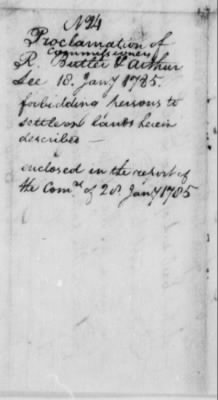 No 24
Proclamation of
commissioners
R. Butler & Arthur
Lee 18. Jany 1785.
forbidding persons to
settle on lands herein
described —
enclosed in the report of
the Comrs of 28. Jany 1785